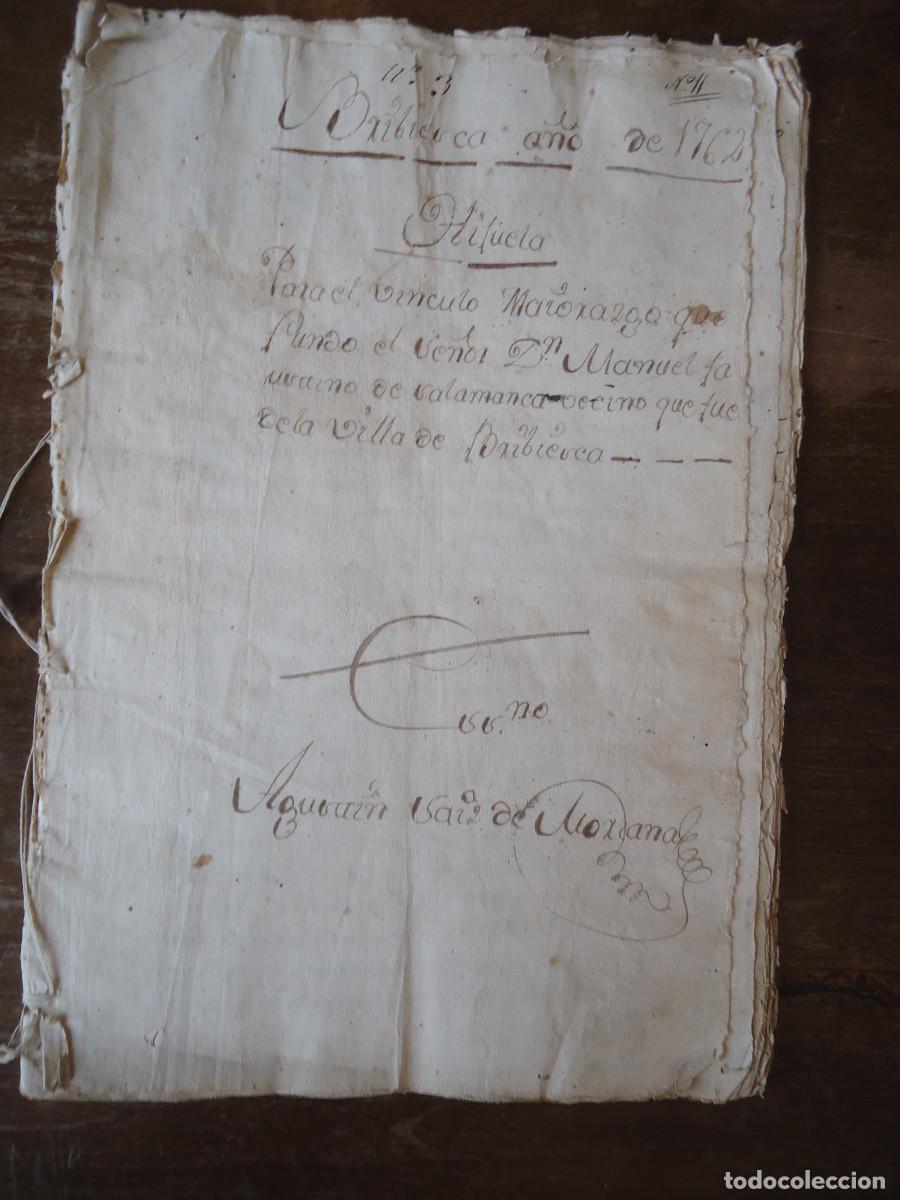 nº 3
Nº 11
Bribiesca año de 1762
Hijuela
Para el vinculo Maiorazgo que
fundo el señor Dn Manuel
de salamanca vecino que fue
de la villa de Bribiesca
Essno
Agustin Saiz de
todocoleccion